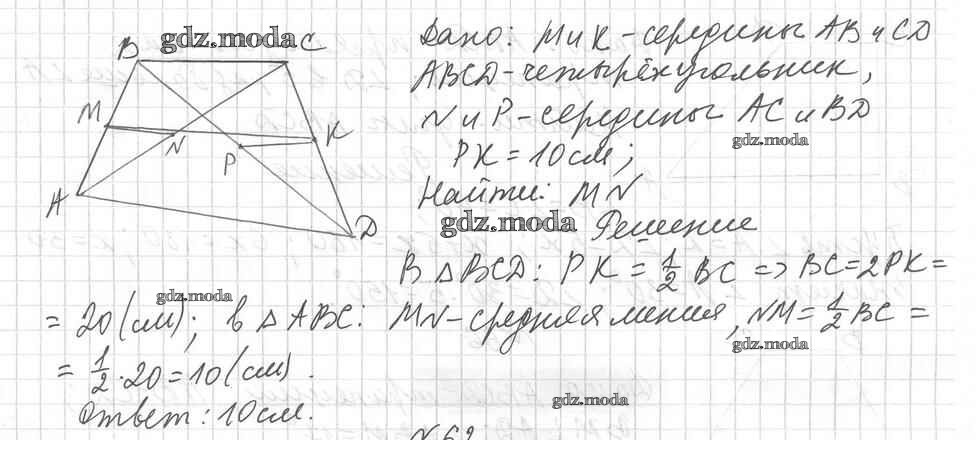 B
gdz.moda
C
M
N
P
K
A
D
Дано: M и K - середины AB и CD
ABCD - четырёхугольник,
N и P - середины AC и BD
gdz.moda
PK = 10 см;
Найти: MN
gdz.moda Решение
В △BCD: PK = 1/2 BC => BC = 2PK =
gdz.moda
= 20 (см); в △ABC: MN - средняя линия, NM = 1/2 BC =
gdz.moda
= 1/2 · 20 = 10 (см).
gdz.moda
Ответ: 10 см.